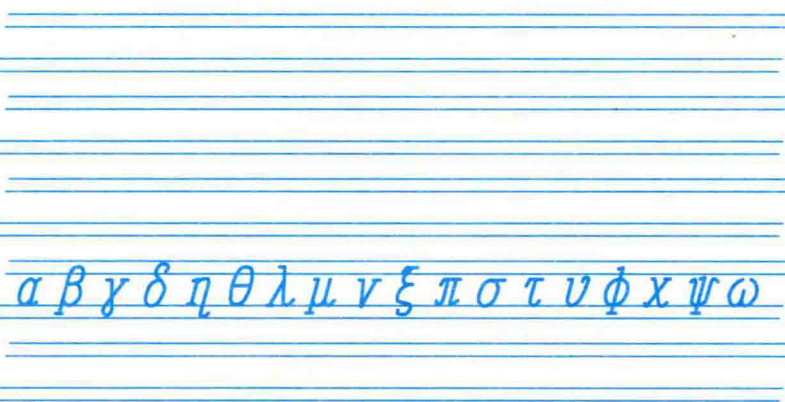 α β γ δ η θ λ μ ν ξ π σ τ υ φ χ ψ ω